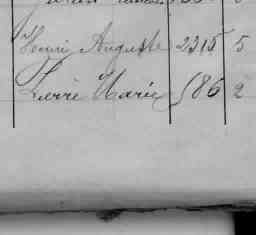 Henri Auguste 2315 5
Pierre Marie 586 2